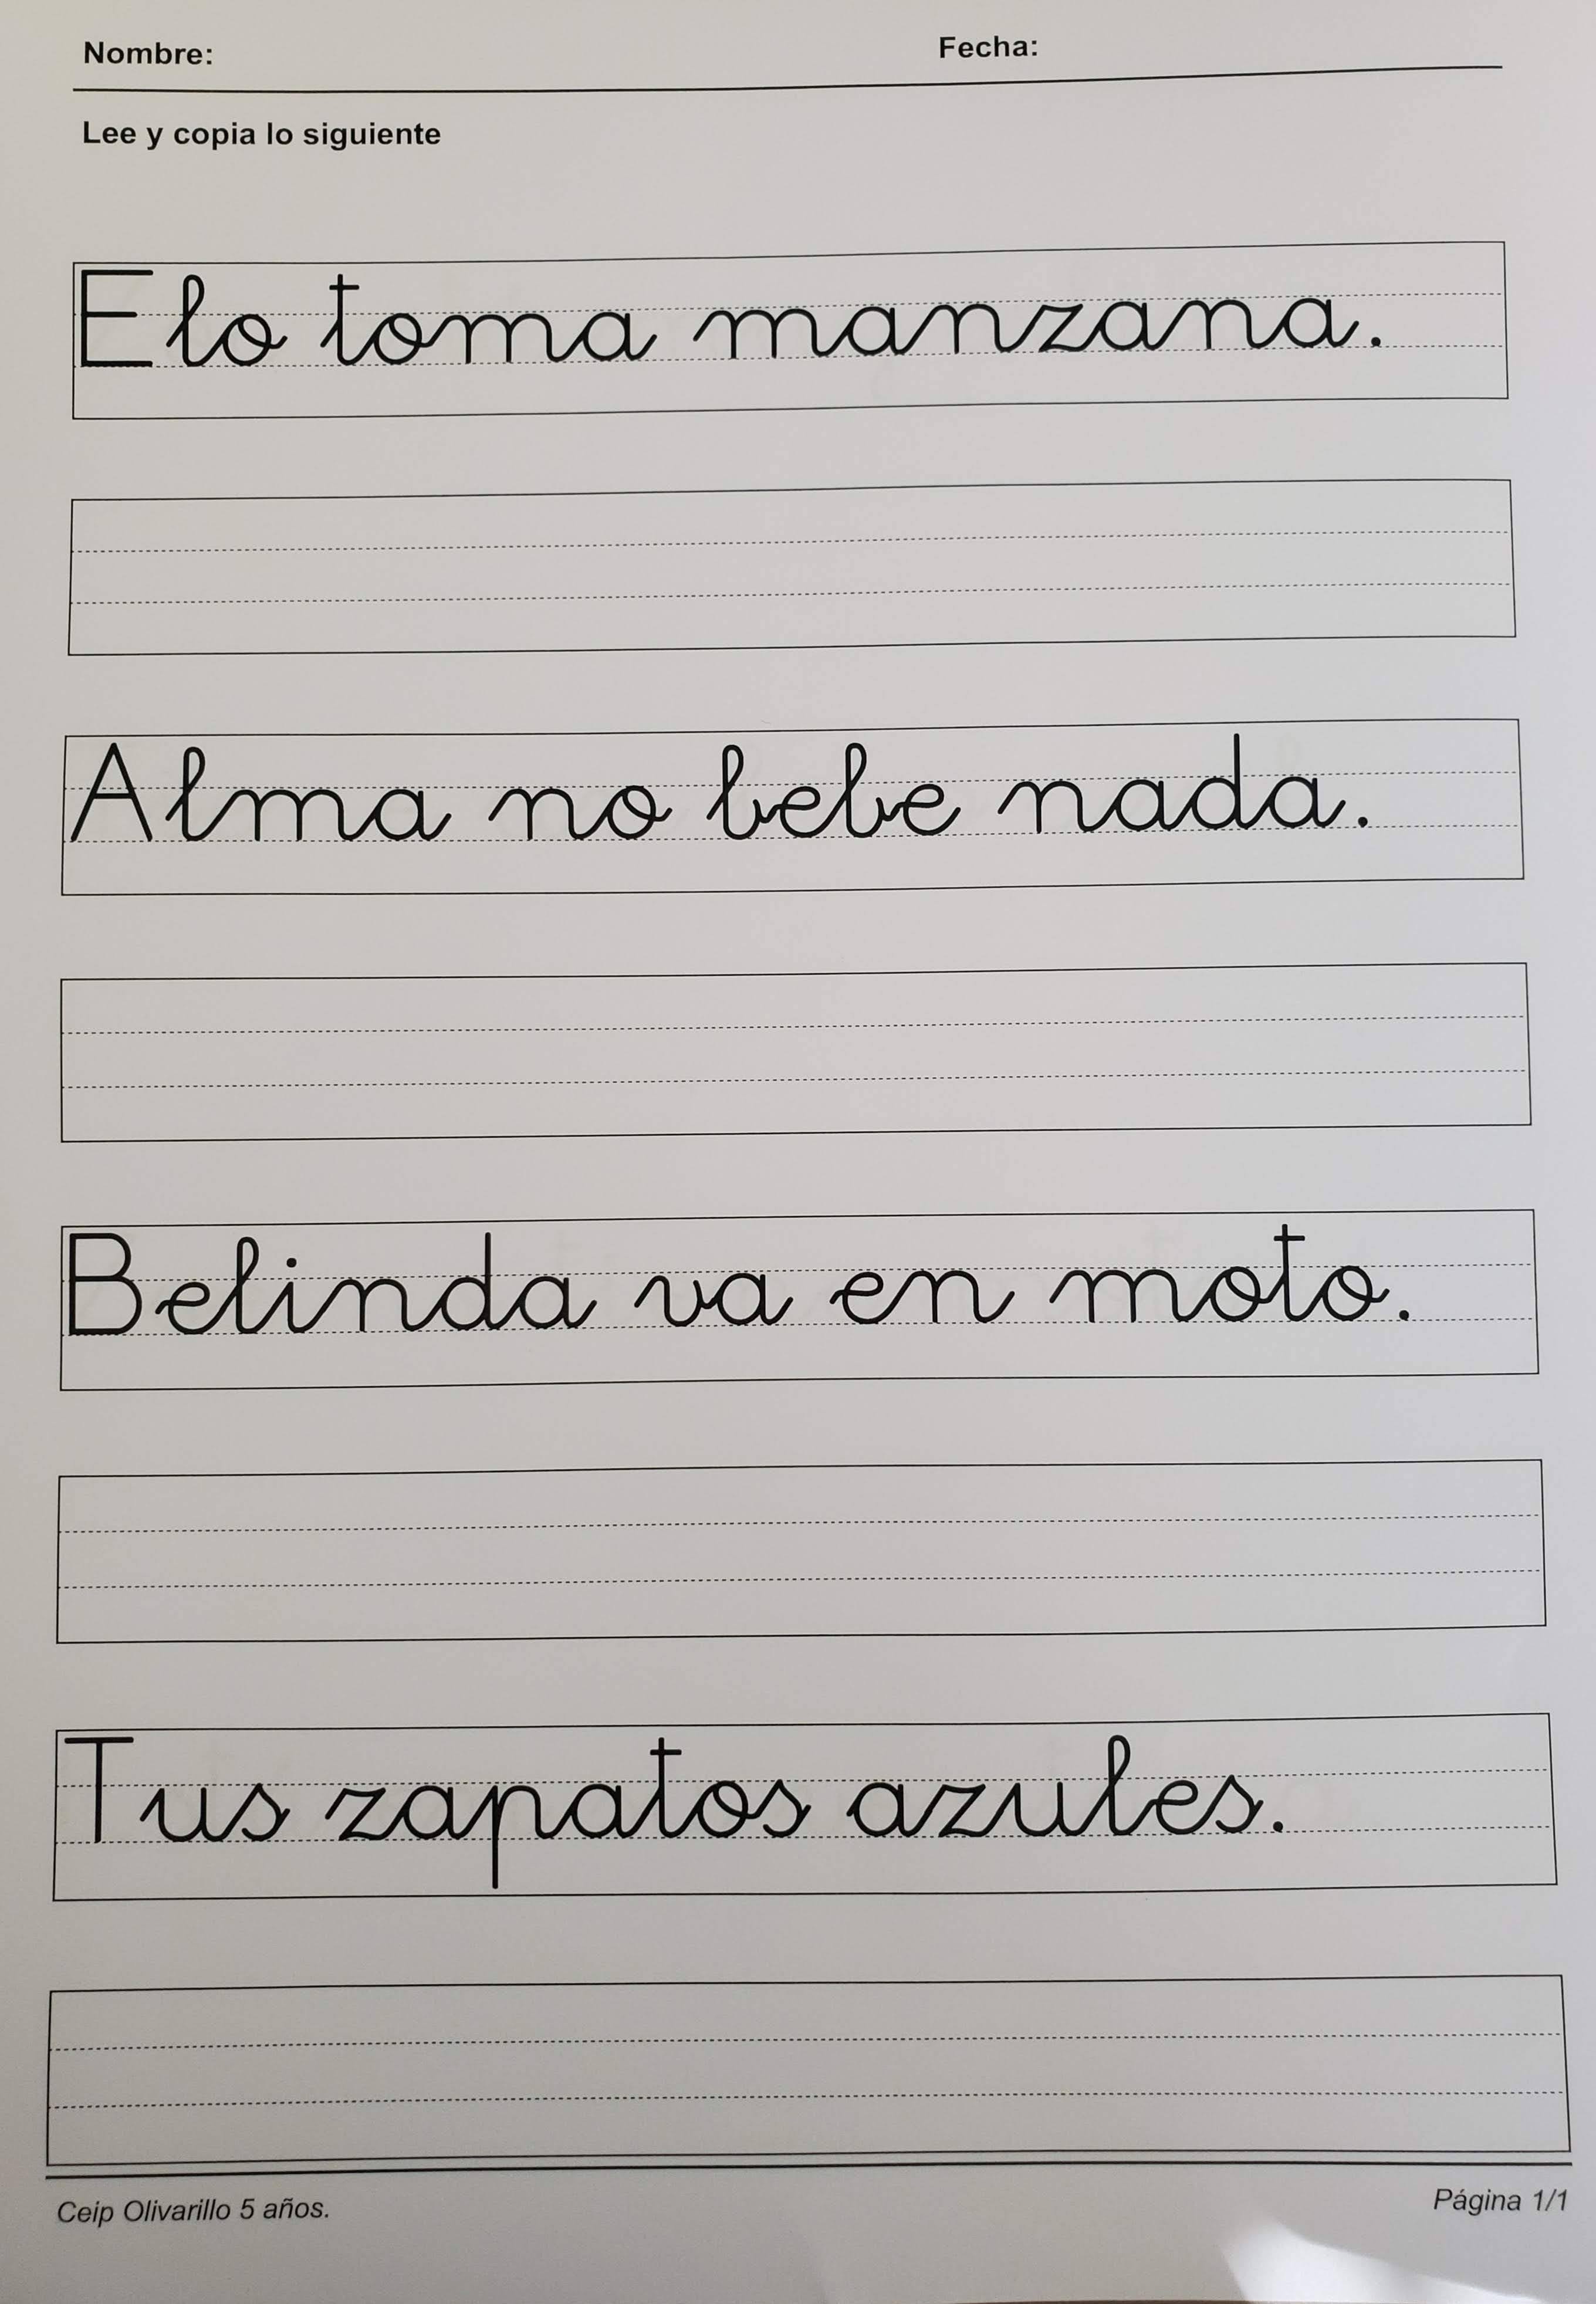 Nombre: Fecha:
Lee y copia lo siguiente
Elo toma manzana.
Alma no bebe nada.
Belinda va en moto.
Tus zapatos azules.
Ceip Olivarillo 5 años. Página 1/1